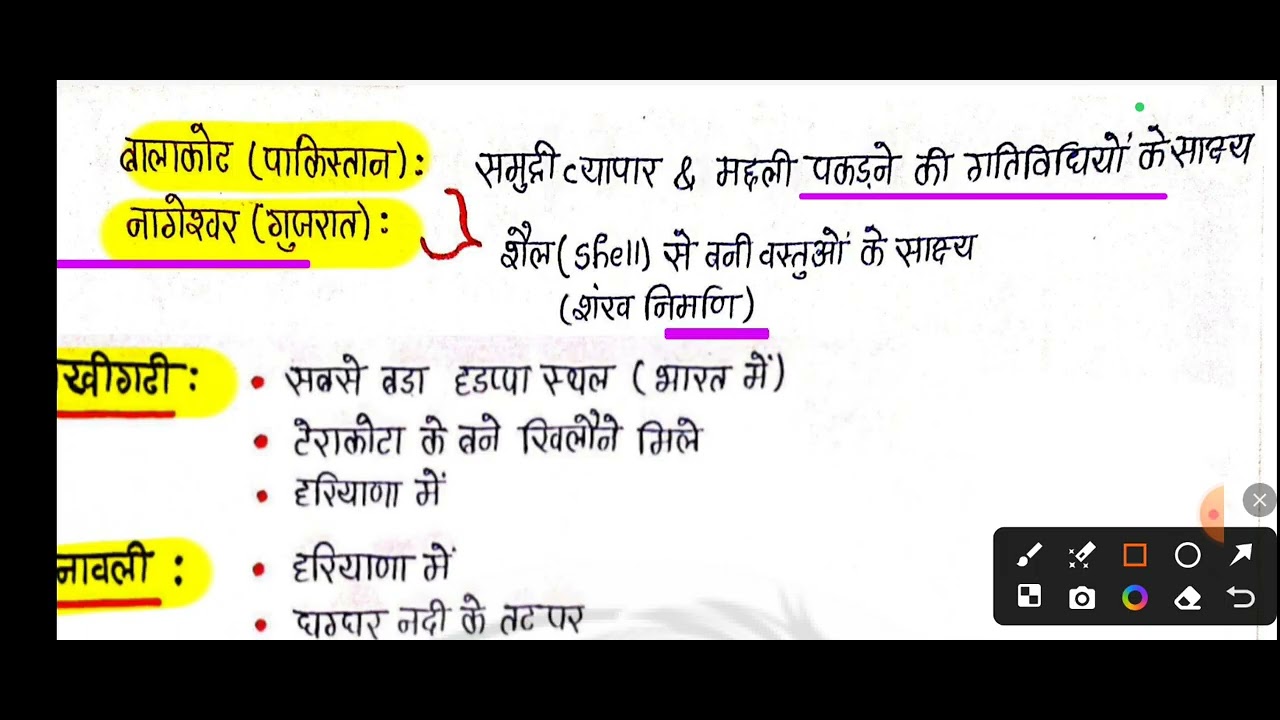 बालाकोट (पाकिस्तान): समुद्री व्यापार & मछली पकड़ने की गतिविधियों के साक्ष्य
नागेश्वर (गुजरात): शैल (shell) से बनी वस्तुओं के साक्ष्य
(शंख निर्माण)
खीगढी: • सबसे बडा हडप्पा स्थल (भारत में)
• टेराकोटा के बने खिलौने मिले
• हरियाणा में
नावली: • हरियाणा में
• घग्घर नदी के तट पर